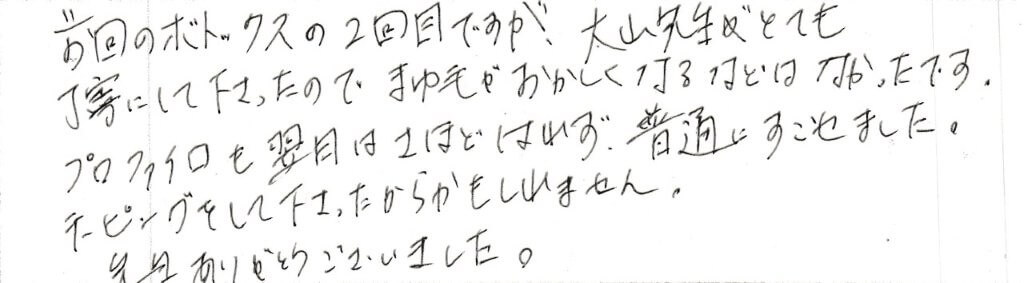 前回のボトックスの2回目ですが、大山先生がとても
丁寧にして下さったので まゆ毛が おかしくなるなどは なかったです.
プロファイロも翌日はさほどはれず、普通にすごせました。
テーピングをして下さったからかもしれません。
先生ありがとうございました。